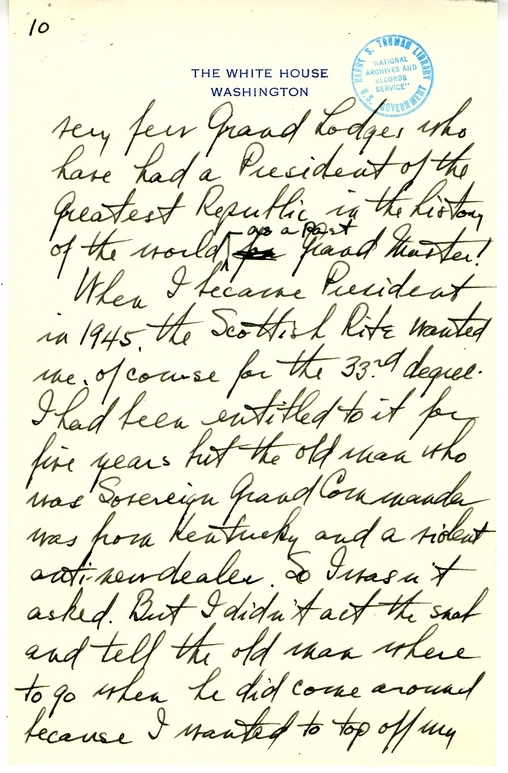 10
THE WHITE HOUSE
WASHINGTON
HARRY S. TRUMAN LIBRARY
"NATIONAL
ARCHIVES AND
RECORDS
SERVICE"
U.S. GOVERNMENT
very few Grand Lodges who
have had a President of the
Greatest Republic in the history
as a Past
of the world for Grand Master!
When I became President
in 1945, the Scottish Rite wanted
me, of course for the 33rd degree.
I had been entitled to it for
five years but the old man who
was Sovereign Grand Commander
was from Kentucky and a violent
anti-newdealer. So I wasn't
asked. But I didn't act the snob
and tell the old man where
to go when he did come around
because I wanted to top off my